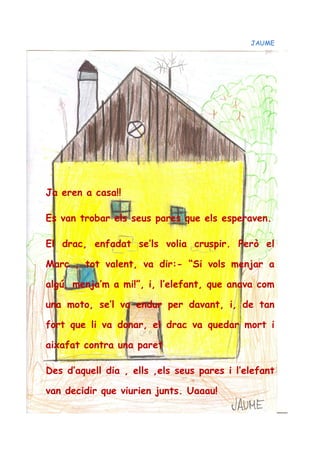 JAUME
Ja eren a casa!!
Es van trobar els seus pares que els esperaven.
El drac, enfadat se’ls volia cruspir. Però el
Marc, tot valent, va dir:- “Si vols menjar a
algú, menja’m a mi!”, i, l’elefant, que anava com
una moto, se’l va endur per davant, i, de tan
fort que li va donar, el drac va quedar mort i
aixafat contra una paret
Des d’aquell dia , ells ,els seus pares i l’elefant
van decidir que viurien junts. Uaaau!
JAUME